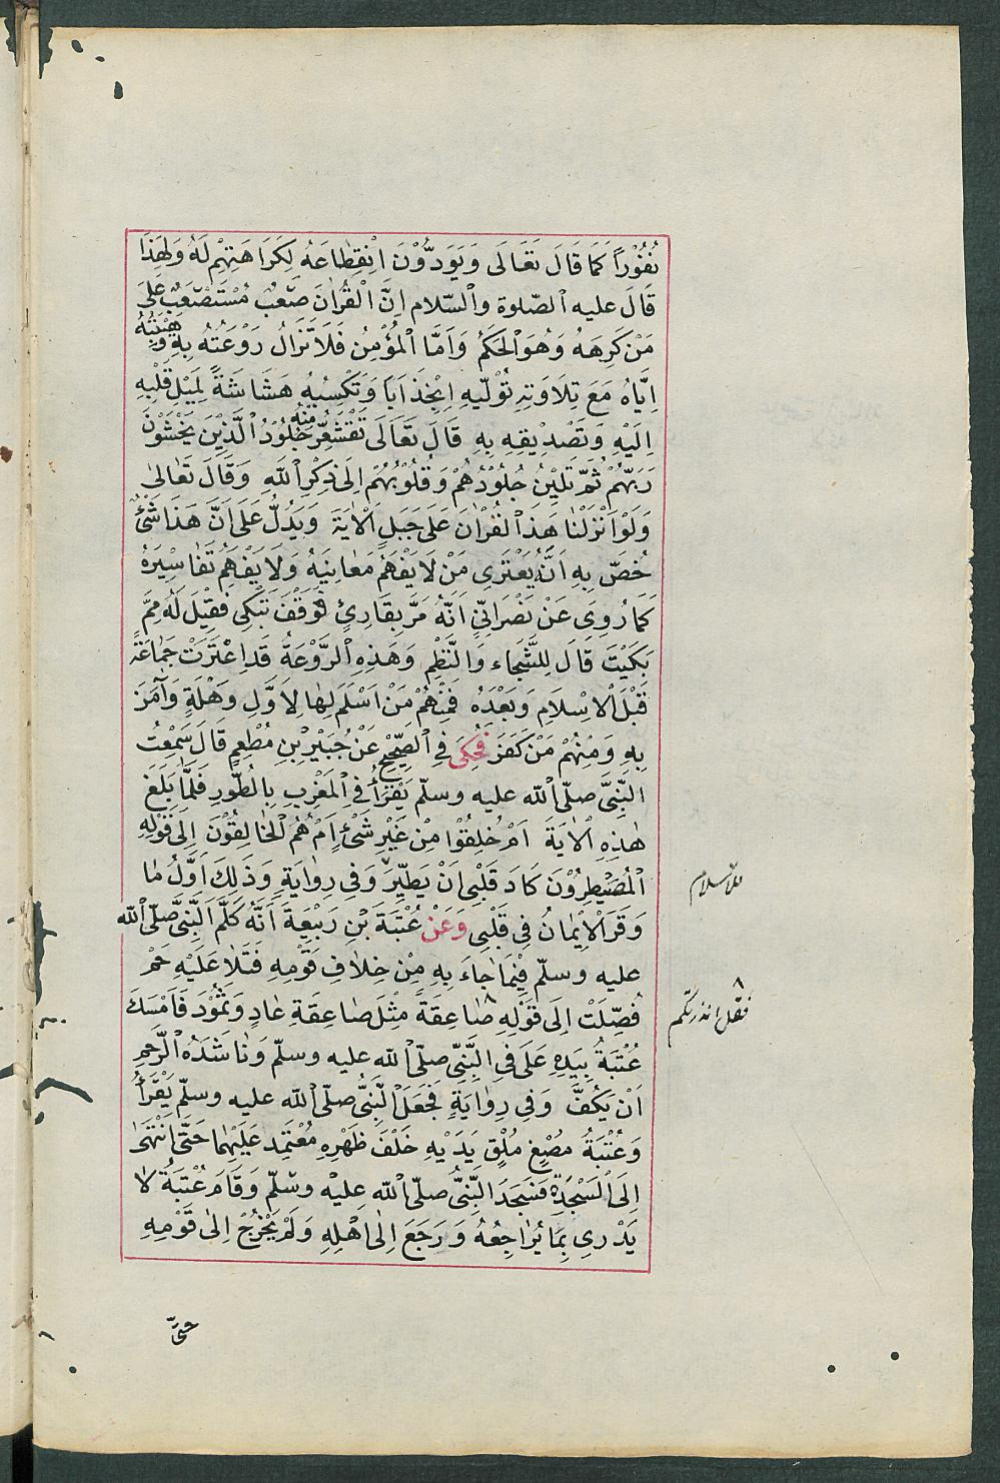 نُفُوْرًا كَمَا قَالَ تَعَالَى وَيَوَدُّوْنَ انْقِطَاعَهُ لِكَرَاهَتِهِمْ لَهُ وَلِهَذَا
قَالَ عليه الصّلوة والسّلام اِنَّ الْقُرْاٰنَ صَعْبٌ مُسْتَصْعَبٌ عَلَى
مَنْ كَرِهَهُ وَهُوَ الْحَكَمُ وَاَمَّا الْمُؤْمِنُ فَلَا تَزَالُ رَوْعَتُهُ بِهِ وَهَيْبَتُهُ
اِيَّاهُ مَعَ تِلَاوَتِهِ تُوْلِيْهِ اِنْجِذَابًا وَتَكْسِبُهُ هَشَاشَةً لِمَيْلِ قَلْبِهِ
اِلَيْهِ وَتَصْدِيْقِهِ بِهِ قَالَ تَعَالَى تَقْشَعِرُّ مِنْهُ جُلُوْدُ الَّذِيْنَ يَخْشَوْنَ
رَبَّهُمْ ثُمَّ تَلِيْنُ جُلُوْدُهُمْ وَقُلُوْبُهُمْ اِلَى ذِكْرِ اللّٰهِ وَقَالَ تَعَالٰى
وَلَوْ اَنْزَلْنَا هَذَا الْقُرْاٰنَ عَلَى جَبَلٍ الْاٰيَةَ وَيَدُلُّ عَلَى اَنَّ هَذَا شَئٌ
خُصَّ بِهِ اَنَّهُ يَعْتَرِى مَنْ لَا يَفْهَمُ مَعَانِيَهُ وَلَا يَفْهَمُ تَفَاسِيْرَهُ
كَمَا رُوِىَ عَنْ نَصْرَانِيٍّ اَنَّهُ مَرَّ بِقَارِئٍ فَوَقَفَ يَبْكِى فَقِيْلَ لَهُ مِمَّ
بَكَيْتَ قَالَ لِلشَّجَاءِ وَالنَّظْمِ وَهَذِهِ الرَّوْعَةُ قَدِ اعْتَرَتْ جَمَاعَةً
قَبْلَ الْاِسْلَامِ وَبَعْدَهُ فَمِنْهُمْ مَنْ اَسْلَمَ لَهَا لِاَوَّلِ وَهْلَةٍ وَآمَنَ
بِهِ وَمِنْهُمْ مَنْ كَفَرَ فَحُكِىَ فِى الصَّحِيْحِ عَنْ جُبَيْرِ بْنِ مُطْعِمٍ قَالَ سَمِعْتُ
النَّبِىَّ صلّى اللّٰه عليه وسلّم يَقْرَأُ فِى الْمَغْرِبِ بِالطُّوْرِ فَلَمَّا بَلَغَ
هٰذِهِ الْاٰيَةَ اَمْ خُلِقُوْا مِنْ غَيْرِ شَئٍْ اَمْ هُمُ الْخَالِقُوْنَ اِلَى قَوْلِهِ
الْمُصَيْطِرُوْنَ كَادَ قَلْبِى اَنْ يَطِيْرَ وَفِى رِوَايَةٍ وَذَلِكَ اَوَّلُ مَا
وَقَرَ الْاِيْمَانُ فِى قَلْبِى وَعَنْ عُتْبَةَ بْنِ رَبِيْعَةَ اَنَّهُ كَلَّمَ النَّبِىَّ صلّى اللّٰه
عليه وسلّم فِيْمَا جَاءَ بِهِ مِنْ خِلَافِ قَوْمِهِ فَتَلَا عَلَيْهِ حٰم
فُصِّلَتْ اِلَى قَوْلِهِ صَاعِقَةً مِثْلَ صَاعِقَةِ عَادٍ وَثَمُوْدَ فَاَمْسَكَ
عُتْبَةُ بِيَدِهِ عَلَى فِى النَّبِىِّ صلّى اللّٰه عليه وسلّم وَنَاشَدَهُ الرَّحِمَ
اَنْ يَكُفَّ وَفِى رِوَايَةٍ فَجَعَلَ النَّبِىُّ صلّى اللّٰه عليه وسلّم يَقْرَأُ
وَعُتْبَةُ مُصْغٍ مُلْقٍ يَدَيْهِ خَلْفَ ظَهْرِهِ مُعْتَمِد عَلَيْهِمَا حَتَّى انْتَهَى
اِلَى السَّجْدَةِ فَسَجَدَ النَّبِىُّ صلّى اللّٰه عليه وسّلّم وَقَامَ عُتْبَةُ لَا
يَدْرِى بِمَا يُرَاجِعُهُ وَرَجَعَ اِلٰى اَهْلِهِ وَلَمْ يَخْرُجْ اِلٰى قَوْمِهِ
حَتَّى
للاسلام
فقل انذرتكم